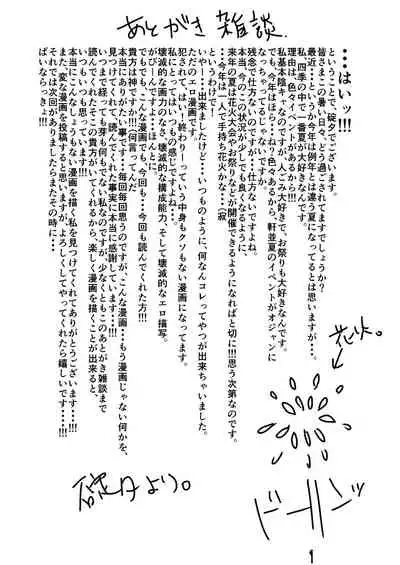 あとがき雑談
・・・はいッ!!!
ということで、碇夕でございます。
皆さまこの暑い日々どう過ごされてますでしょうか?
最近・・・というか今年は例年とは違う夏になってるとは思いますが・・・。
私、四季の中で一番夏が大好きなんです。
理由は、色々イベントがあるから!!!
私基本陰キャなのですが、人ごみ大好きで、お祭りも大好きなんです。
でも、今年はほら・・・ね?色々あるから、軒並夏のイベントがオジャンに
なっちゃってるじゃないですか。
残念で仕方ないのですが・・・仕方ないですよね。
本当、今のこの状況が少しでも良くなるように、
来年の夏は花火大会やお祭りなどが開催できるようになればと切に!!!思う次第なのです。
・・今年は一人で手持ち花火かな・・・寂
というわけで!
いやー・・・出来ましたけど・・・いつものように、何なんコレってやつが出来ちゃいました。
ただのエロ漫画です。
犯されて、はい!終わりーっていう中身もクソもない漫画になってます。
私にとってはいつもの感じですよね・・・。
壊滅的な画力のなさ、壊滅的な構成能力、そして壊滅的なエロ描写。
がびーんですよ・・・ほんとに。
でも・・・!こんな漫画でも、今回も・・・今回も読んでくれた方!!!
貴方は神ですか!!!(何言ってんだ
本当にありがたい事です・・・毎回毎回思うのですが、こんな漫画・・・もう漫画じゃない何かを、
見つけてくれて、読んでくれた事実に本当に感謝しています・・・!!!
いつまで経っても芽も何も出ない私なのですが、少なくともこのあとがき雑談まで
読んでくれたそこの貴方がいてくれるから、楽しく漫画を描くことが出来ると、
いつもいつも思います・・・!!
本当にこんなしょうもない漫画を描く私を見つけてくれてありがとうございます・・・!!!
また、変な漫画を投稿すると思いますが、よろしくしてやってくれたら嬉しいです・・・!!!
それでは次回がありましたらまたその時に・・・
ばいならっきょ!!!
花火。
ドーンッ
碇夕より。
1